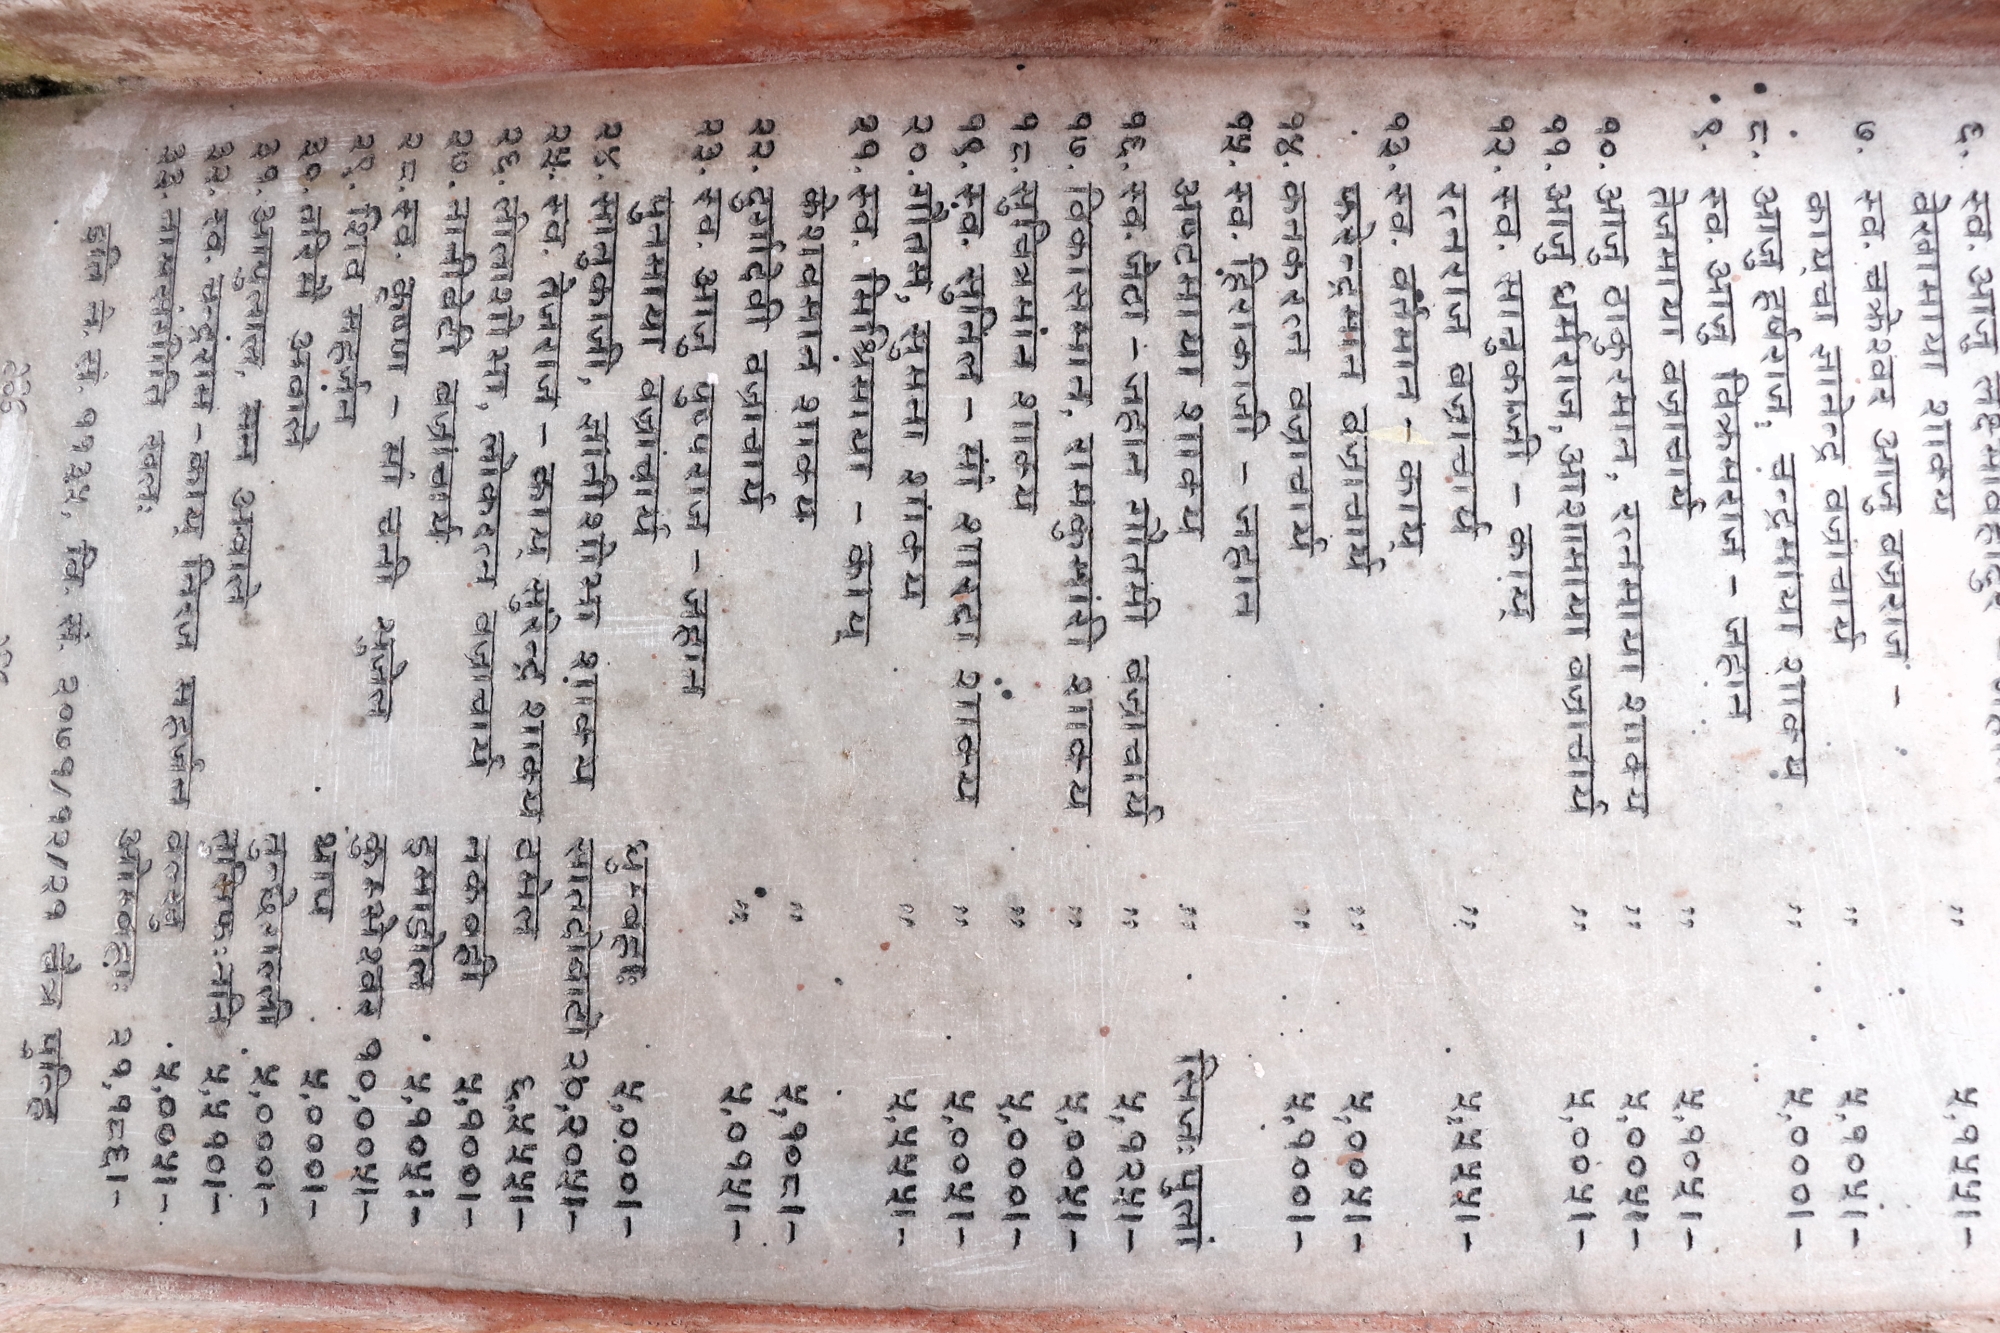 ६. स्व. आजु
वेखामाया शाक्य " ५,१५५।-
७. स्व. चक्रेश्वर आजु वज्रराज -
काय्‌चा ज्ञानेन्द्र वज्राचार्य " ५,१०५।-
८. आजु हर्षराज, चन्द्रमाया शाक्य " ५,०००।-
९. स्व. आजु विक्रमराज - जहान
तेजमाया वज्राचार्य " ५,१०५।-
१०. आजु ठाकुरमान, रत्नमाया शाक्य " ५,००५।-
११. आजु धर्मराज, आशामाया वज्राचार्य " ५,००५।-
१२. स्व. सानुकाजी - काय्
रत्नराज वज्राचार्य " ५,५५५।-
१३. स्व. वर्तमान - काय्
फरेन्द्रमान वज्राचार्य " ५,००५।-
१४. कनकरत्न वज्राचार्य " ५,१००।-
१५. स्व. हिराकाजी - जहान
अष्टमाया शाक्य " सिजः पुलां
१६. स्व. जेठा - जहान गौतमी वज्राचार्य " ५,१२५।-
१७. विकासमान, रामकुमारी शाक्य " ५,००५।-
१८. सुचित्रमान शाक्य " ५,०००।-
१९. स्व. सुनिल - मां शारदा शाक्य " ५,००५।-
२०. गौतम, सुमना शाक्य " ५,५५५।-
२१. स्व. मिश्रिमाया - काय्
केशवमान शाक्य " ५,१०८।-
२२. दुर्गादेवी वज्राचार्य " ५,०१५।-
२३. स्व. आजु पुण्यराज - जहान
पुनमाया वज्राचार्य धुम्बहाः ५,०००।-
२४. सानुकाजी, ज्ञानीशोभा शाक्य सातदोबाटो २७,२०५।-
२५. स्व. तेजराज - काय् सुरेन्द्र शाक्य ठमेल ६,५५५।-
२६. लीलाशोभा, लोकरत्न वज्राचार्य नकबही ५,१००।-
२७. नानीवटी वज्राचार्य इमाडोल ५,१०५।-
२८. स्व. कृष्ण - मां चनी भुजेल कुम्भेश्वर १०,००५।-
२९. शिव महर्जन भाप ५,०००।-
३०. तरिमै अवाले लुन्छेगल्ली ५,०००।-
३१. आयुलाल, मन अवाले लुमिफःननि ५,५१०।-
३२. स्व. चन्द्रराम - काय् निरज महर्जन वत्छु ५,००५।-
३३. लाभसंगति खलः ओमबहाः २१,१८६।-
इति ने. सं. ११३५, वि. सं. २०७१/१२/२१ चैत्र पुन्हि